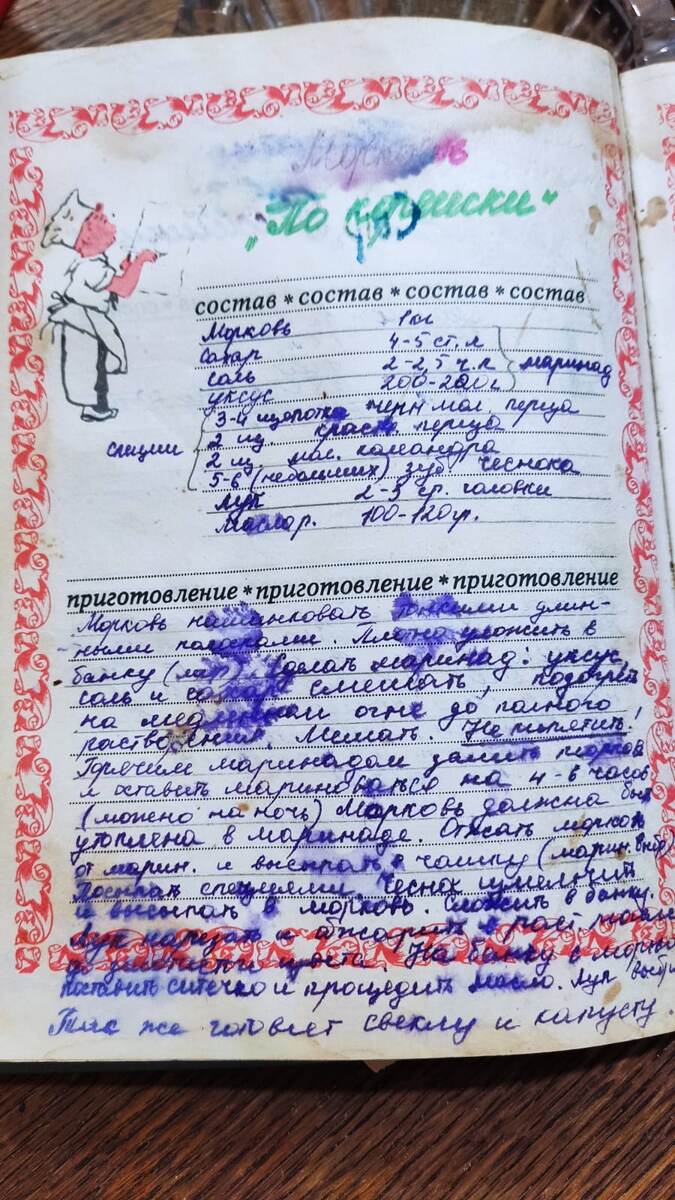 Морковь
„По корейски"
состав * состав * состав * состав
Морковь 1 кг
Сахар 4-5 ст. л
Соль 2-2,5 ч. л маринад
уксус 200-220 г
3-4 щепотки черн мол. перца
2 щ. красн перца
специи 2 щ. мол. кориандра
5-6 (небольших) зуб чеснока
лук 2-3 ср. головки
Масло р. 100-120 гр.
приготовление * приготовление * приготовление
Морковь нашинковать тонкими длин-
ными полосками. Плотно уложить в
банку Сделать маринад: уксус,
соль и сахар смешать, подогреть
на медленном огне до полного
растворения. Мешать. Не кипятить!
Горячим маринадом залить морковь
и оставить мариноваться на 4-6 часов
(можно на ночь) Морковь должна быть
утоплена в маринаде. Отжать морковь
от марин. и высыпать в чашку (марин. выбр)
Посыпать специями. Чеснок измельчить
и высыпать в морковь. Сложить в банку.
Лук нарезать и обжарить в раст масле
до золотистого цвета. На банку с морковью
поставить ситечко и процедить масло. Лук выбр
Так же готовят свеклу и капусту.